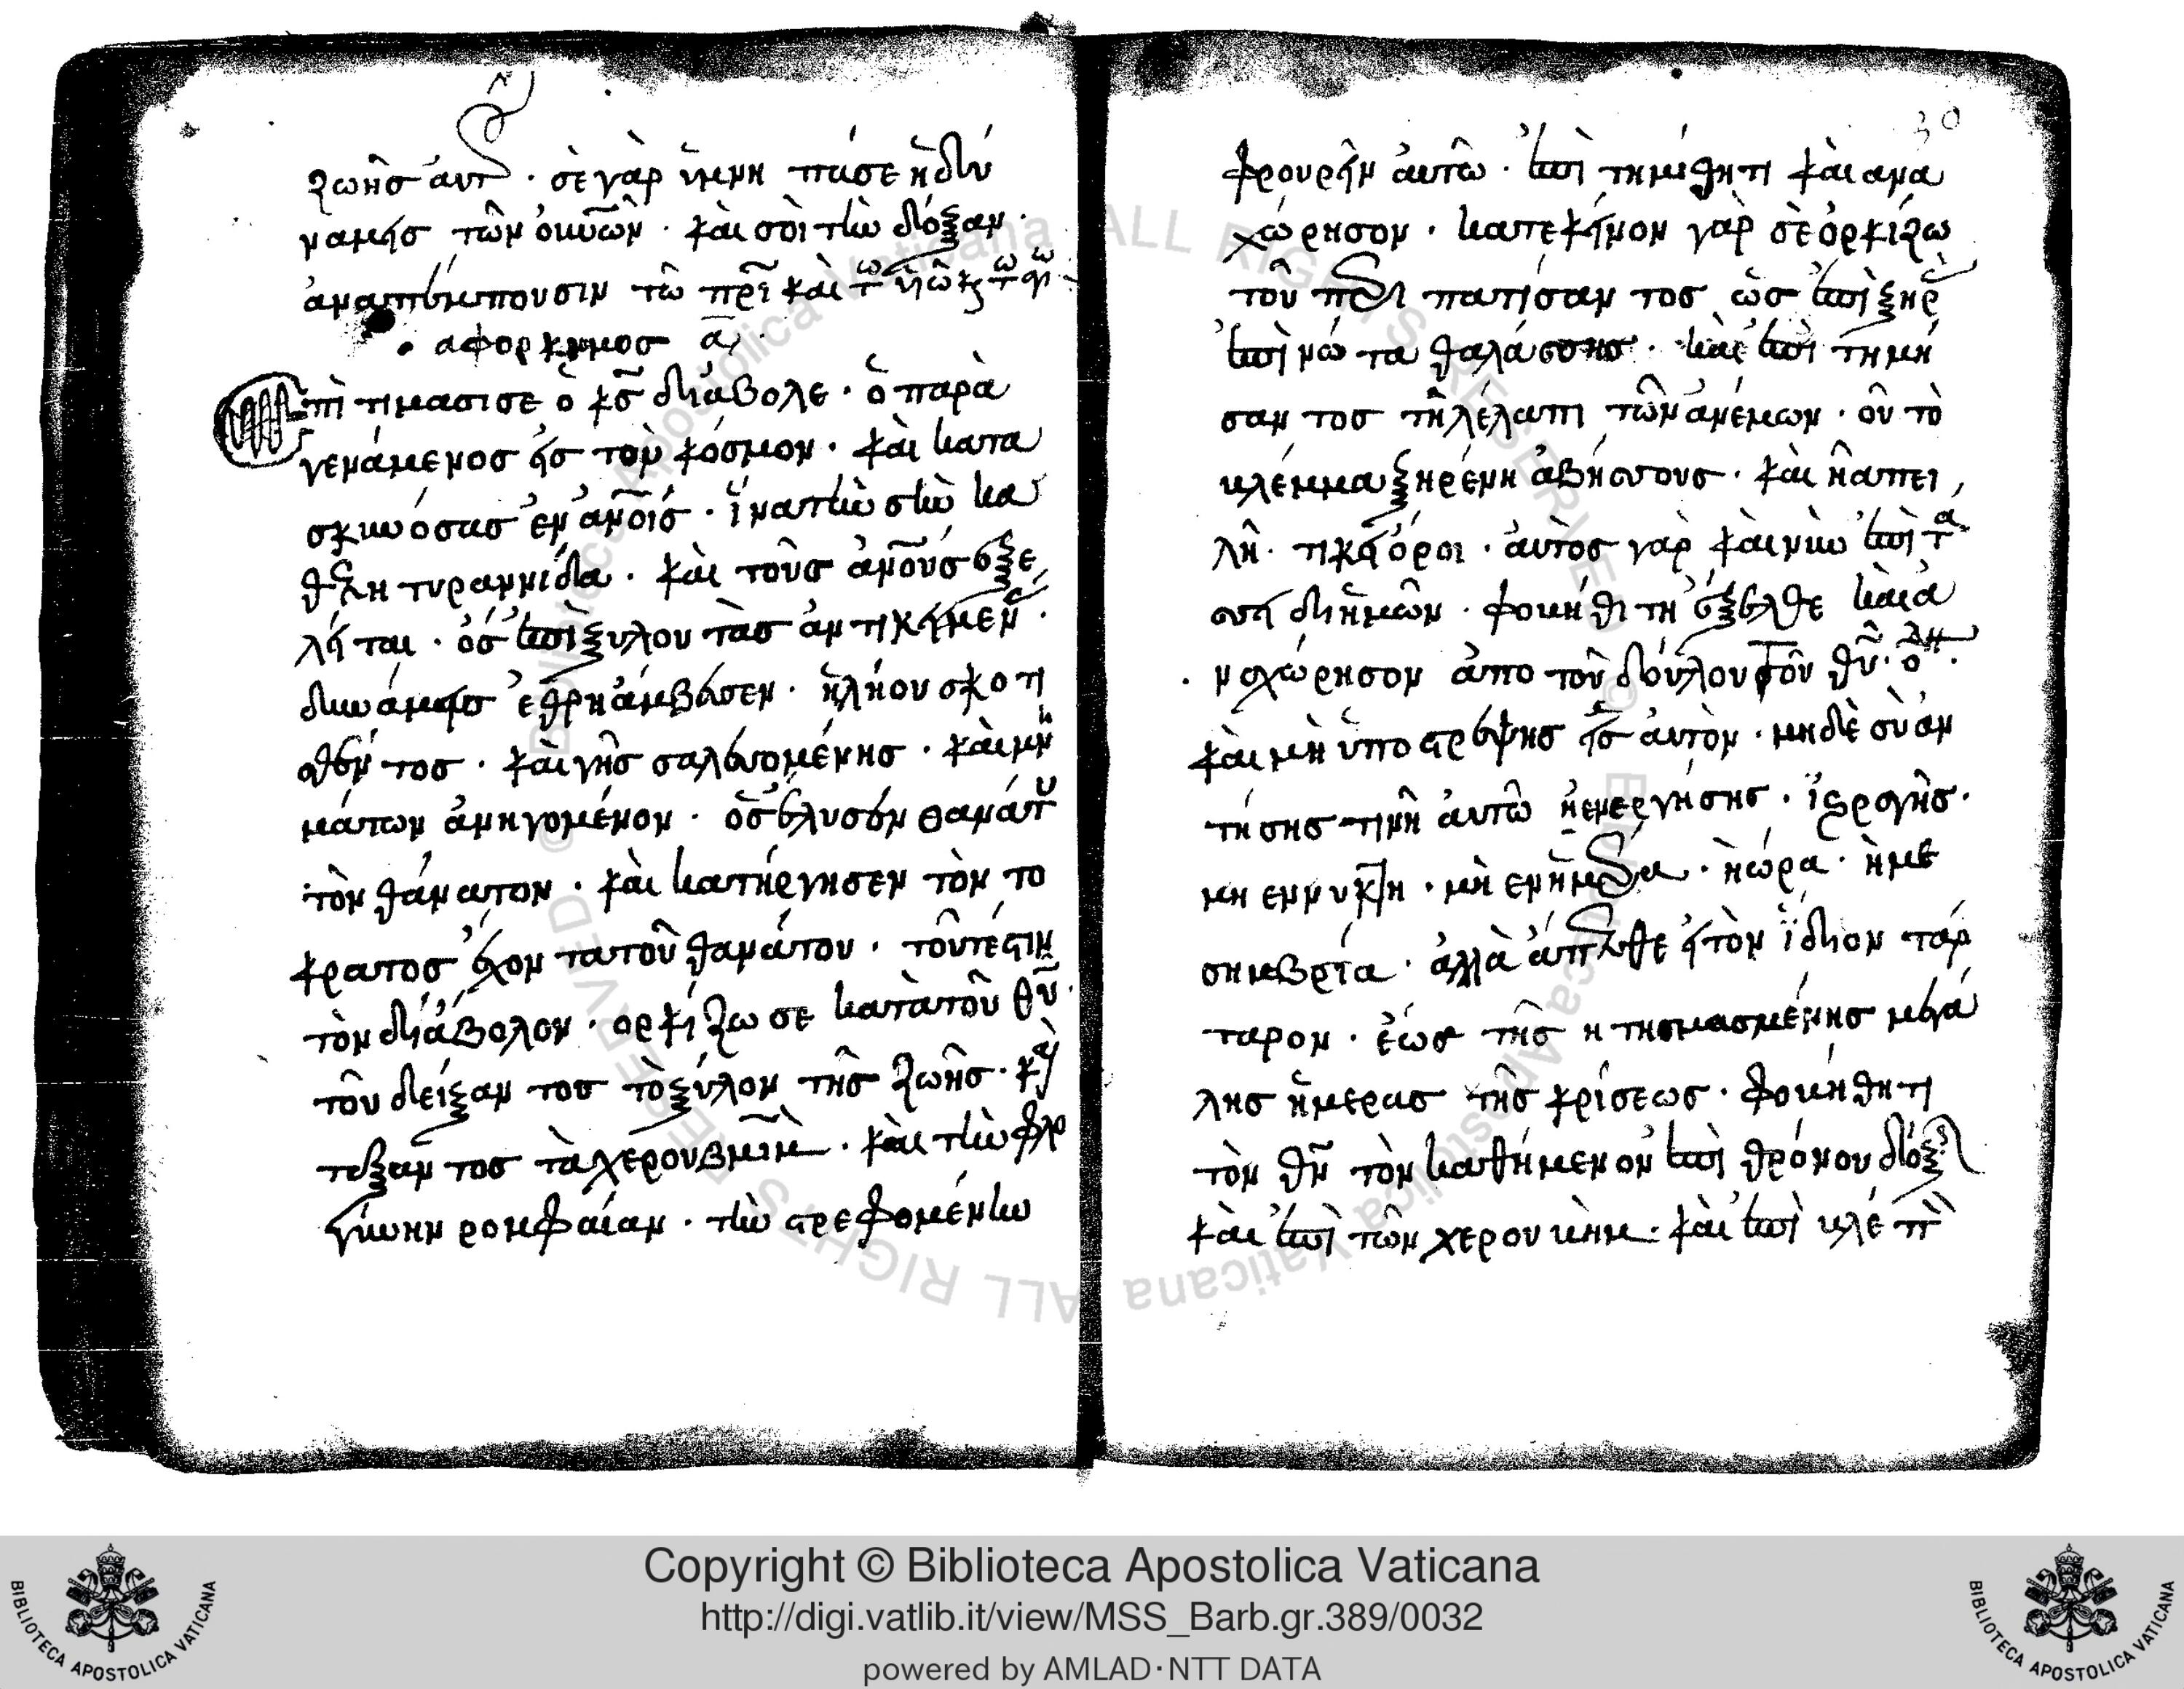 ζωῆσ αυτ · σὲ γὰρ ὑμνη πάσε ἡ δυ
ναμεις τῶν οὐνῶν · καὶ σοὶ τὴν δόξαν ·
ἀναπέμπουσιν τῶ πρι καὶ τω υιῶ κς τω
αφορκισμος α
πι τιμασισε ὁ κς διάβολε · ὁ παρα
γενάμενοσ εἰς τὸν κόσμον · καὶ κατα
σκινόσασ ἐν ἀνοισ · ἵνα τὴν σὴν κα
θέλη τυραννίδα · καὶ τοῦσ ἀνουσ εξε
λῆται · ὁσ ἐπὶ ξυλου τὰσ ἀντικημεν
δυνάμεισ ἐθρηάμβευσεν · ἡλήου σκοτι
σθέντοσ · καὶ γῆσ σαλευομένησ · καὶ μν
μάτων ἀνηγομένον · ὁσ ἔλυσεν θανάτ
τὸν θάνατον · καὶ κατήργησεν τὸν το
κρατοσ ἔχοντα τοῦ θανάτου · τοῦτέστιν
τὸν διάβολον · ορκίζω σε κατὰ τοῦ θυ
τοῦ δείξαντοσ τὸ ξύλον τῆσ ζωῆσ · κ
ταξαντοσ τὰ χερουβημ · καὶ τὴν φλο
γίνην ρομφαίαν · τὴν στρεφομένην
30
φρουρεῖν ἀυτῶ · ἐπι τημίθητι καὶ ανα
χώρησον · κατεκείνον γὰρ σὲ ὁρκίζω
τοῦ περι πατίσαντοσ ὡσ ἐπὶ ξηρ
ἐπὶ νώτα θαλάσσησ · καὶ ἐπι τημή
σαντοσ τῆ λέλαπι τῶν ἀνέμων · οὗ τὸ
βλέμμα ξηρένη ἀβήσσουσ · καὶ ἡ απει
λῆ · τικει ὄροι · ἀυτὸσ γὰρ καὶ νῦν ἐπι τα
σσει δι ἡμῶν · φοβήθιτη ἔξελθε καὶ ἀ
ναχώρησον ἀπο τοῦ δούλου τοῦ θυ ·
καὶ μὴ ὑποστρέψησ εἰσ αυτὸν · μηδὲ συναν
τήσησ τινῆ ἀυτῶ ἡ ενεργήσησ ·
μη εν νυκτη · μὴ εν ημερα · ἡ ὥρα · ἡ με
σημβρία · ἀλλὰ ἀπελθε ει τὸν ἵδιον τάρ
ταρον · ἑώσ τῆσ ητημασμένησ μεγά
λησ ἡμερασ τῆσ κρίσεωσ · φοβήθητι
τὸν θν τὸν καθήμενον ἐπὶ θρόνου δόξ
καὶ ἐπὶ τῶν χερουβημ · καὶ ἐπι βλέπ
Copyright © Biblioteca Apostolica Vaticana
http://digi.vatlib.it/view/MSS_Barb.gr.389/0032
powered by AMLAD·NTT DATA
BIBLIOTECA APOSTOLICA VATICANA
BIBLIOTECA APOSTOLICA VATICANA